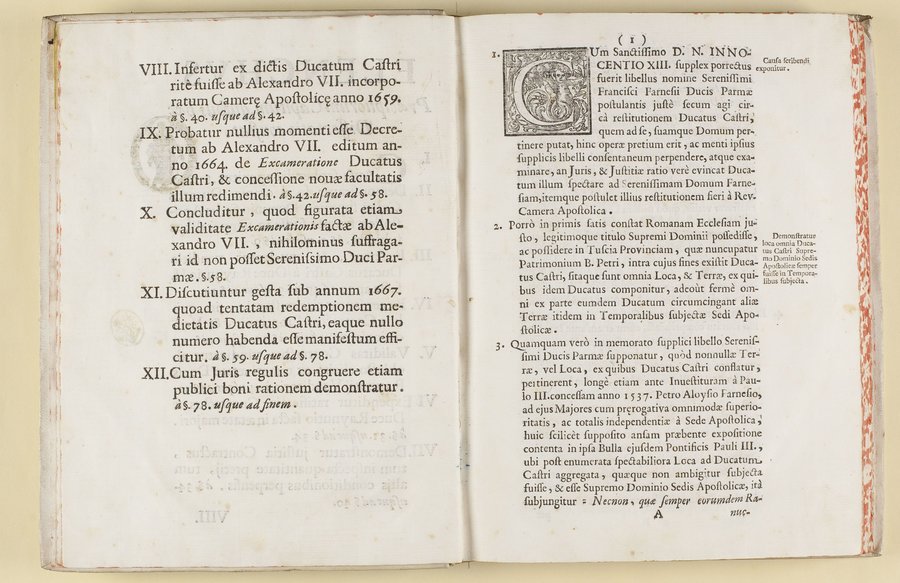 VIII. Insertur ex dictis Ducatum Castri
ritè fuisse ab Alexandro VII. incorpo-
ratum Camerę Apostolicę anno 1659.
à §. 40. usque ad §. 42.
IX. Probatur nullius momenti esse Decre-
tum ab Alexandro VII. editum an-
no 1664. de Excameratione Ducatus
Castri, & concessione nouæ facultatis
illum redimendi. à §. 42. usque ad §. 58.
X. Concluditur, quod figurata etiam
validitate Excamerationis factæ ab Ale-
xandro VII., nihilominus suffraga-
ri id non posset Serenissimo Duci Par-
mæ. §. 58.
XI. Discutiuntur gesta sub annum 1667.
quoad tentatam redemptionem me-
dietatis Ducatus Castri, eaque nullo
numero habenda esse manifestum effi-
citur. à §. 59. usque ad §. 78.
XII. Cum Juris regulis congruere etiam
publici boni rationem demonstratur.
à §. 78. usque ad finem.
VIII.
(1)
1. CUm Sanctissimo D. N. INNO-
CENTIO XIII. supplex porrectus
fuerit libellus nomine Serenissimi
Francisci Farnesii Ducis Parmæ
postulantis justè secum agi cir-
cà restitutionem Ducatus Castri,
quem ad se, suamque Domum per-
tinere putat, hinc operæ pretium erit, ac menti ipsius
supplicis libelli consentaneum perpendere, atque exa-
minare, an Juris, & Justitiæ ratio verè evincat Duca-
tum illum spectare ad Serenissimam Domum Farne-
siam, itemque postulet illius restitutionem fieri à Rev.
Camera Apostolica.
Causa scribendi
exponitur.
2. Porrò in primis satis constat Romanam Ecclesiam ju-
sto, legitimoque titulo Supremi Dominii possedisse,
ac possidere in Tuscia Provinciam, quæ nuncupatur
Patrimonium B. Petri, intra cujus fines existit Duca-
tus Castri, sitaque sunt omnia Loca, & Terræ, ex qui-
bus idem Ducatus componitur, adeoùt fermè om-
ni ex parte eumdem Ducatum circumcingant aliæ
Terræ itidem in Temporalibus subjectæ Sedi Apo-
stolicæ.
Demonstratur
loca omnia Duca-
tus Castri Supre-
mo Dominio Sedis
Apostolicæ semper
fuisse in Tempora-
libus subjecta.
3. Quamquam verò in memorato supplici libello Serenis-
simi Ducis Parmæ supponatur, quòd nonnullæ Ter-
ræ, vel Loca, ex quibus Ducatus Castri conflatur,
pertinerent, longè etiam ante Inuestituram à Pau-
lo III. concessam anno 1537. Petro Aloysio Farnesio,
ad ejus Majores cum pręrogativa omnimodæ superio-
ritatis, ac totalis independentiæ à Sede Apostolica,
huic scilicèt supposito ansam præbente expositione
contenta in ipsa Bulla ejusdem Pontificis Pauli III.,
ubi post enumerata spectabiliora Loca ad Ducatum
Castri aggregata, quæque non ambigitur subjecta
fuisse, & esse Supremo Dominio Sedis Apostolicæ, ità
subjungitur = Necnon, quæ semper eorumdem Ra-
A
nuc-